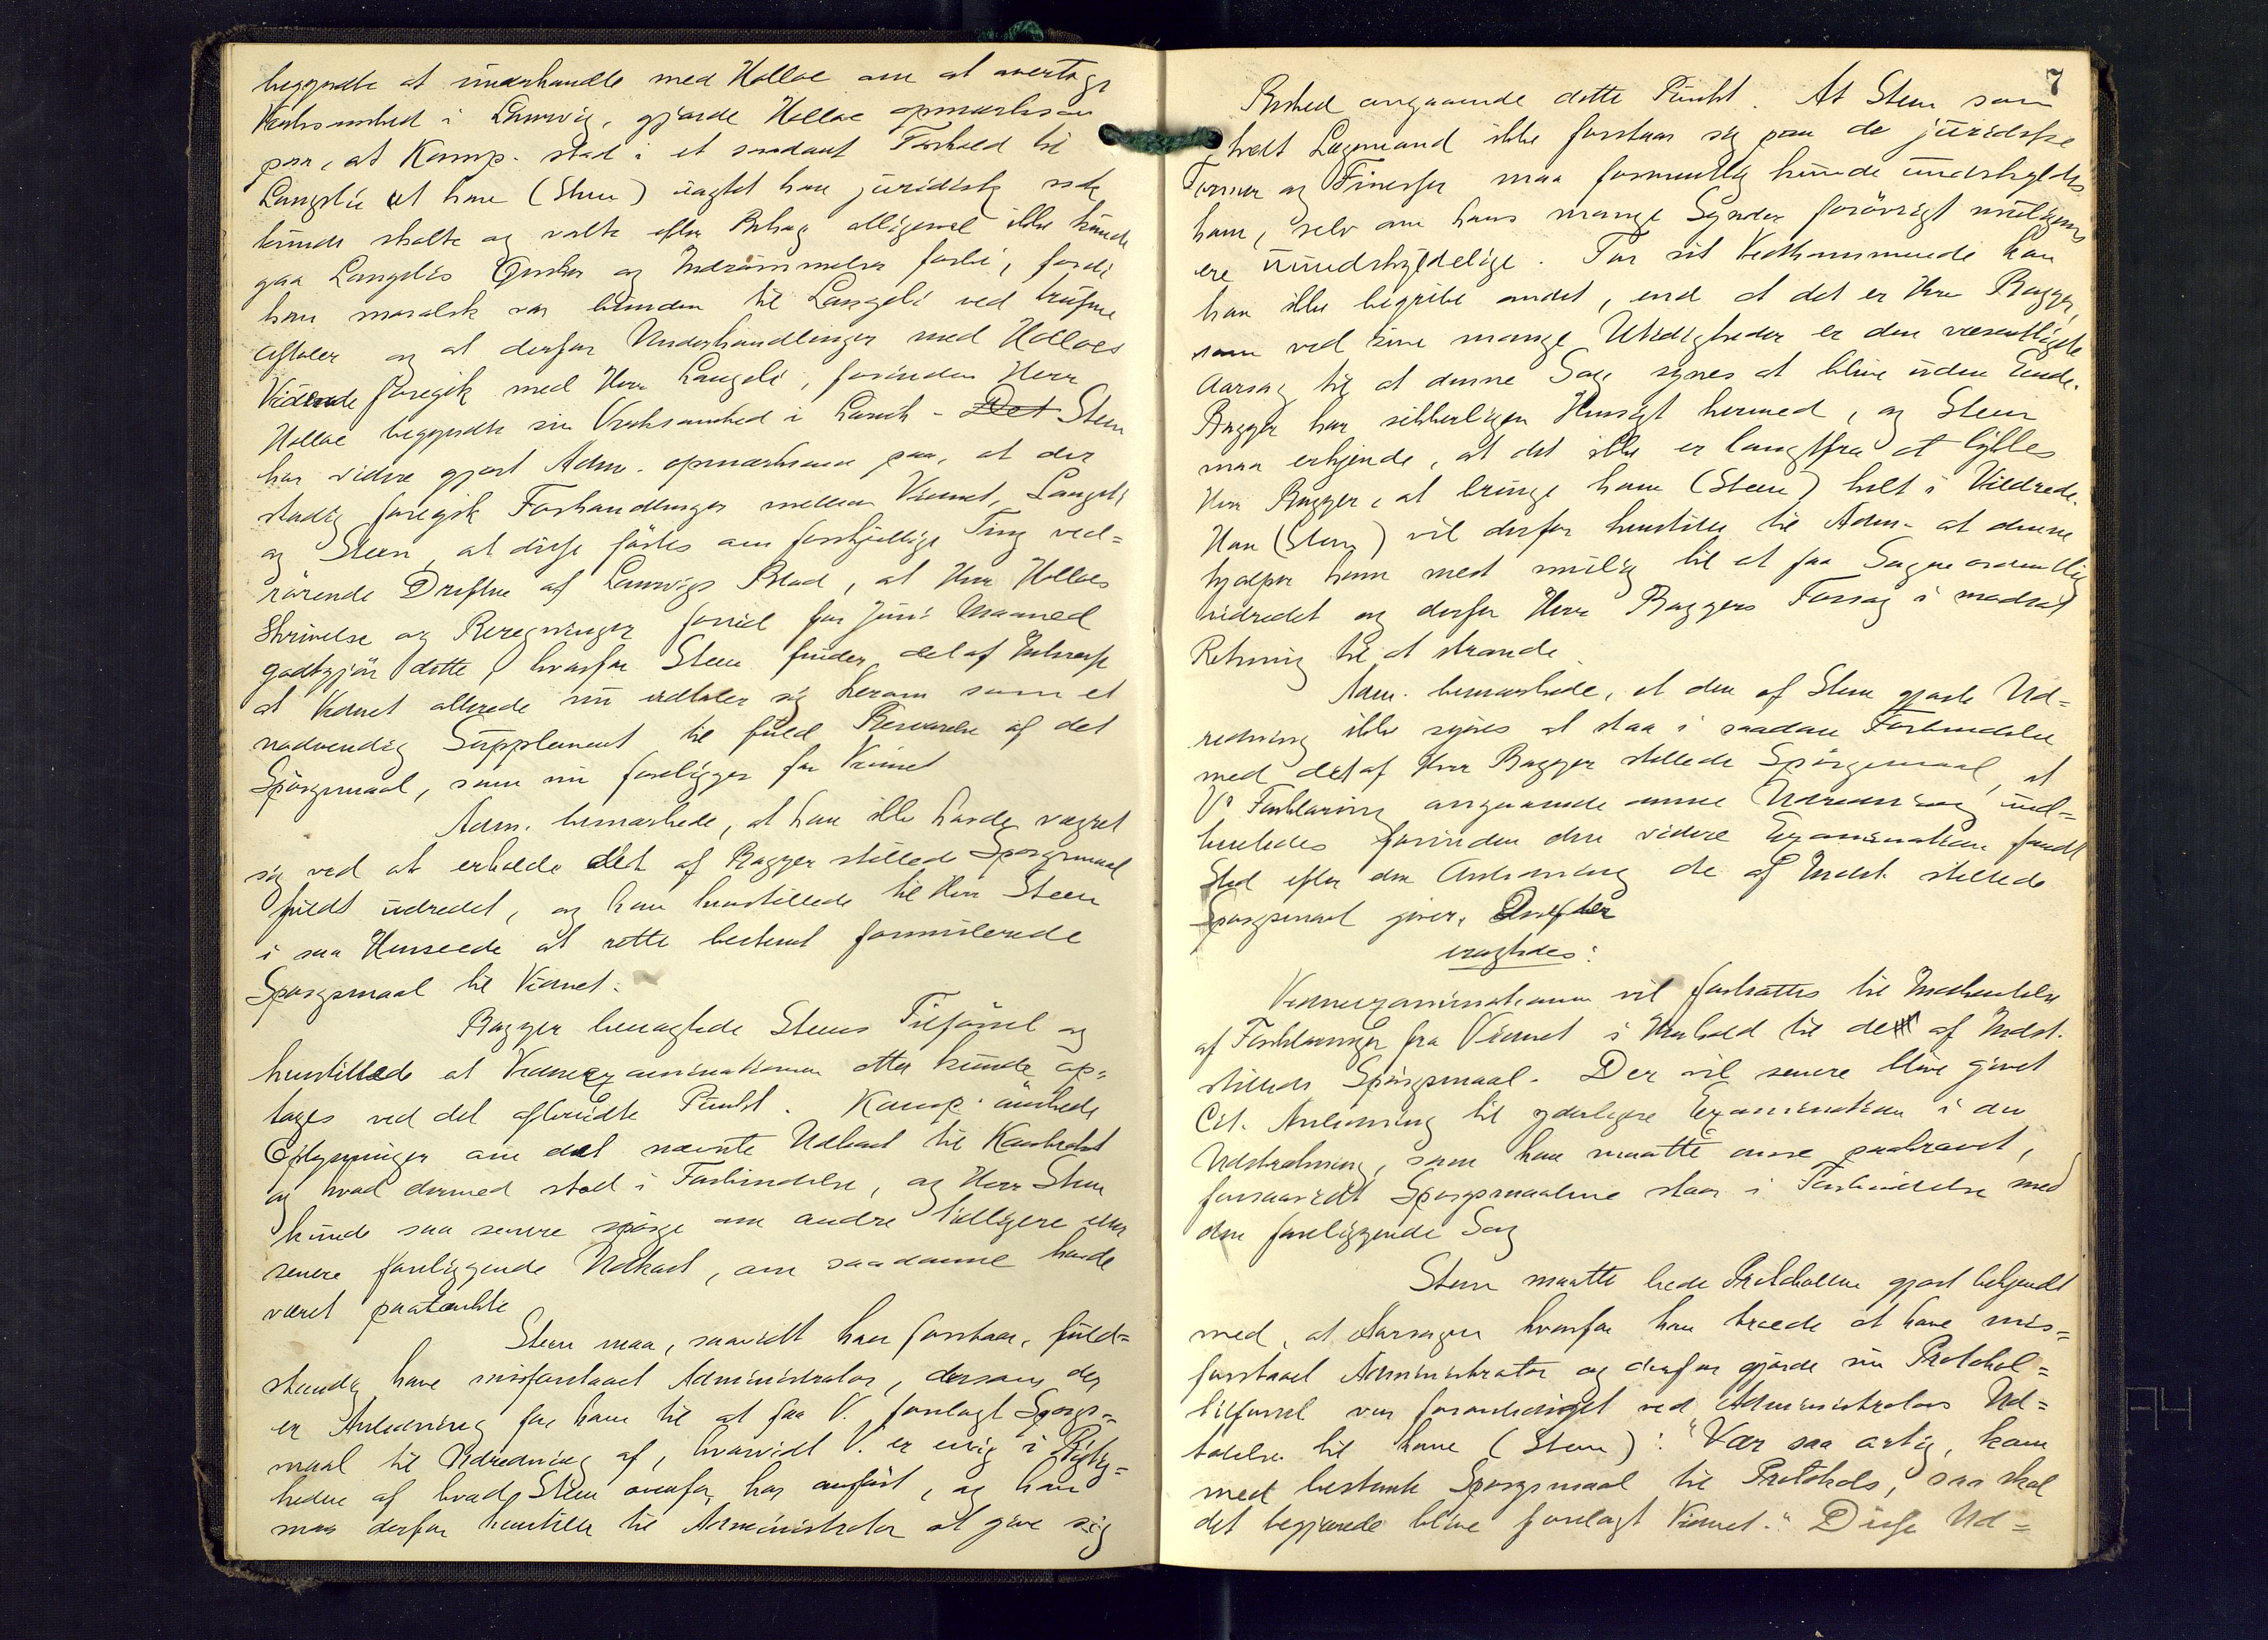 begyndte at underhandle med Holloe om at overtage
Virksomhed i Laurvig, gjorde Holloe opmærksom
paa, at Komp. stod i et saadant Forhold til
Langeli at han (Steen) uagtet han juridisk
kunde skalte og valte efter Behag alligevel ikke kunde
gaa Langelis Ønsker og Indrømmelser forbi, fordi
han moralsk var bunden til Langeli ved trufne
Aftaler og at derfor Underhandlinger med Holloes
Vidende foregik med Herr Langeli, forinden Herr
Holloe begyndte sin Virksomhed i Larvik - Det Steen
har videre gjort Adm. opmærksom paa, at der
stadig foregik Forhandlinger mellem Vidnet, Langeli
og Steen, at disse førtes om forskjellige Ting ved=
rørende Driften af Laurvigs Blad, at Herr Holloes
Skrivelse og Beregninger forud for Juni Maaned
godtgjør dette, hvorfor Steen finder det af Interesse
at Vidnet allerede nu udtaler sig herom som et
nødvendig Supplement til fuld Besvarelse af det
Spørgsmaal, som nu foreligger for Vidnet
Adm. bemærkede, at han ikke havde vægret
sig ved at erholde det af Bagger stillede Spørgsmaal
fuldt udredet, og han henstillede til Herr Steen
i saa Henseede at rette bestemt formulerede
Spørgsmaal til Vidnet.
Bagger benegtede Steens Tilførsel og
henstillede at Vidneexaminationen atter kunde op=
tages ved det afbrudte Punkt. Komp. ønskede
Oplysninger om det nævnte Udkast til Kontrakt
og hvad dermed stod i Forbindelse, og Herr Steen
kunde saa senere spørge om andre tidligere eller
senere foreliggende Udkast, om saadanne havde
været paatænkte
Steen maa, saavidt han forstaar, fuld=
stændig have misforstaaet Administrator, dersom der
er Anledning for ham til at faa V. forelagt Spørgs=
maal til Udredning af, hvorvidt V. er enig i Rigtig=
heden af hvad Steen ovenfor har anført, og han
maa derfor henstille til Administrator at give sig
7
Besked angaaende dette Punkt. At Steen som
Lægmand ikke forstaar sig paa de juridiske
Former og Finesser maa formentlig kunde undskyldes
ham, selv om hans mange Synder forøvrigt muligens
ere uundskyldelige. For sit Vedkommende kan
han ikke begribe andet, end at det er Herr Bagger,
som ved sine mange Utidigheder er den væsentligste
Aarsag til at denne Sag synes at blive uden Ende.
Bagger har sikkerligen Hensigt hermed, og Steen
maa erkjende, at det ikke er langtfra at lykkes
Herr Bagger, at bringe ham (Steen) helt i Vildrede.
Han (Steen) vil derfor henstille til Adm. at denne
hjælper ham mest mulig til at faa Sagen ordentlig
udredet og derfor Herr Baggers Forsøg i modsat
Retning til at strande.
Adm. bemærkede, at den af Steen gjorte Ud=
redning ikke synes at staa i saadan Forbindelse
med det af Herr Bagger stillede Spørgsmaal, at
V's Forklaring angaaende denne Udredning ind=
hentedes forinden den videre Examination fandt
Sted efter den Anledning de af Indst. stillede
Spørgsmaal giver. Derefter
eragtedes:
Vidneexaminationen vil fortsættes til Indhentelse
af Forklaringer fra Vidnet i Henhold til de af Indst.
stillede Spørgsmaal. Der vil senere blive givet
Cit. Anledning til yderligere Examination i den
Udstrækning, som han maatte anse paakrævet,
forsaavidt Spørgsmaalene staar i Forbindelse med
den foreliggende Sag
Steen maatte bede Protokollen gjort bekjendt
med, at Aarsagen hvorfor han troede at have mis=
forstaaet Administrator og derfor gjorde sin Protokol=
tilførsel var foranlediget ved Administrators Ud=
talelse til ham (Steen): "Vær saa artig, kom
med bestemte Spørgsmaal til Protokols, saa skal
det begjærede blive forelagt Vidnet." Disse Ud=